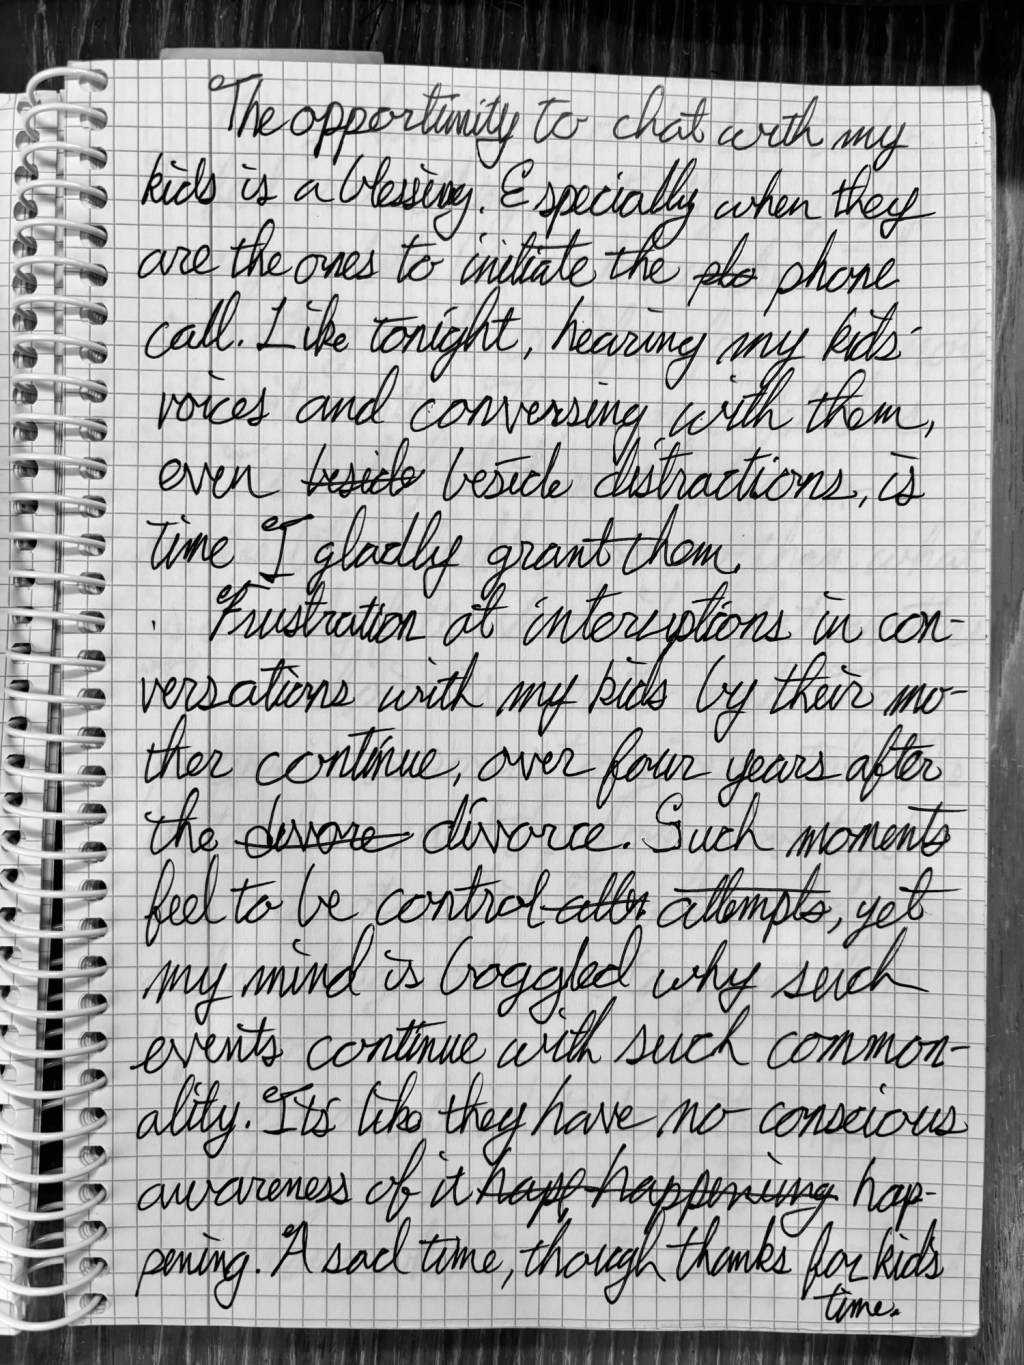 The opportunity to chat with my
kids is a blessing. Especially when they
are the ones to initiate the pho phone
call. Like tonight, hearing my kids'
voices and conversing with them,
even beside beside distractions, is
time I gladly grant them.
Frustration at interuptions in con-
versations with my kids by their mo-
ther continue, over four years after
the divore divorce. Such moments
feel to be control attempts, yet
my mind is boggled why such
events continue with such common-
ality. It's like they have no conscious
awareness of it hap happening hap-
pening. A sad time, though thanks for kid's
time.